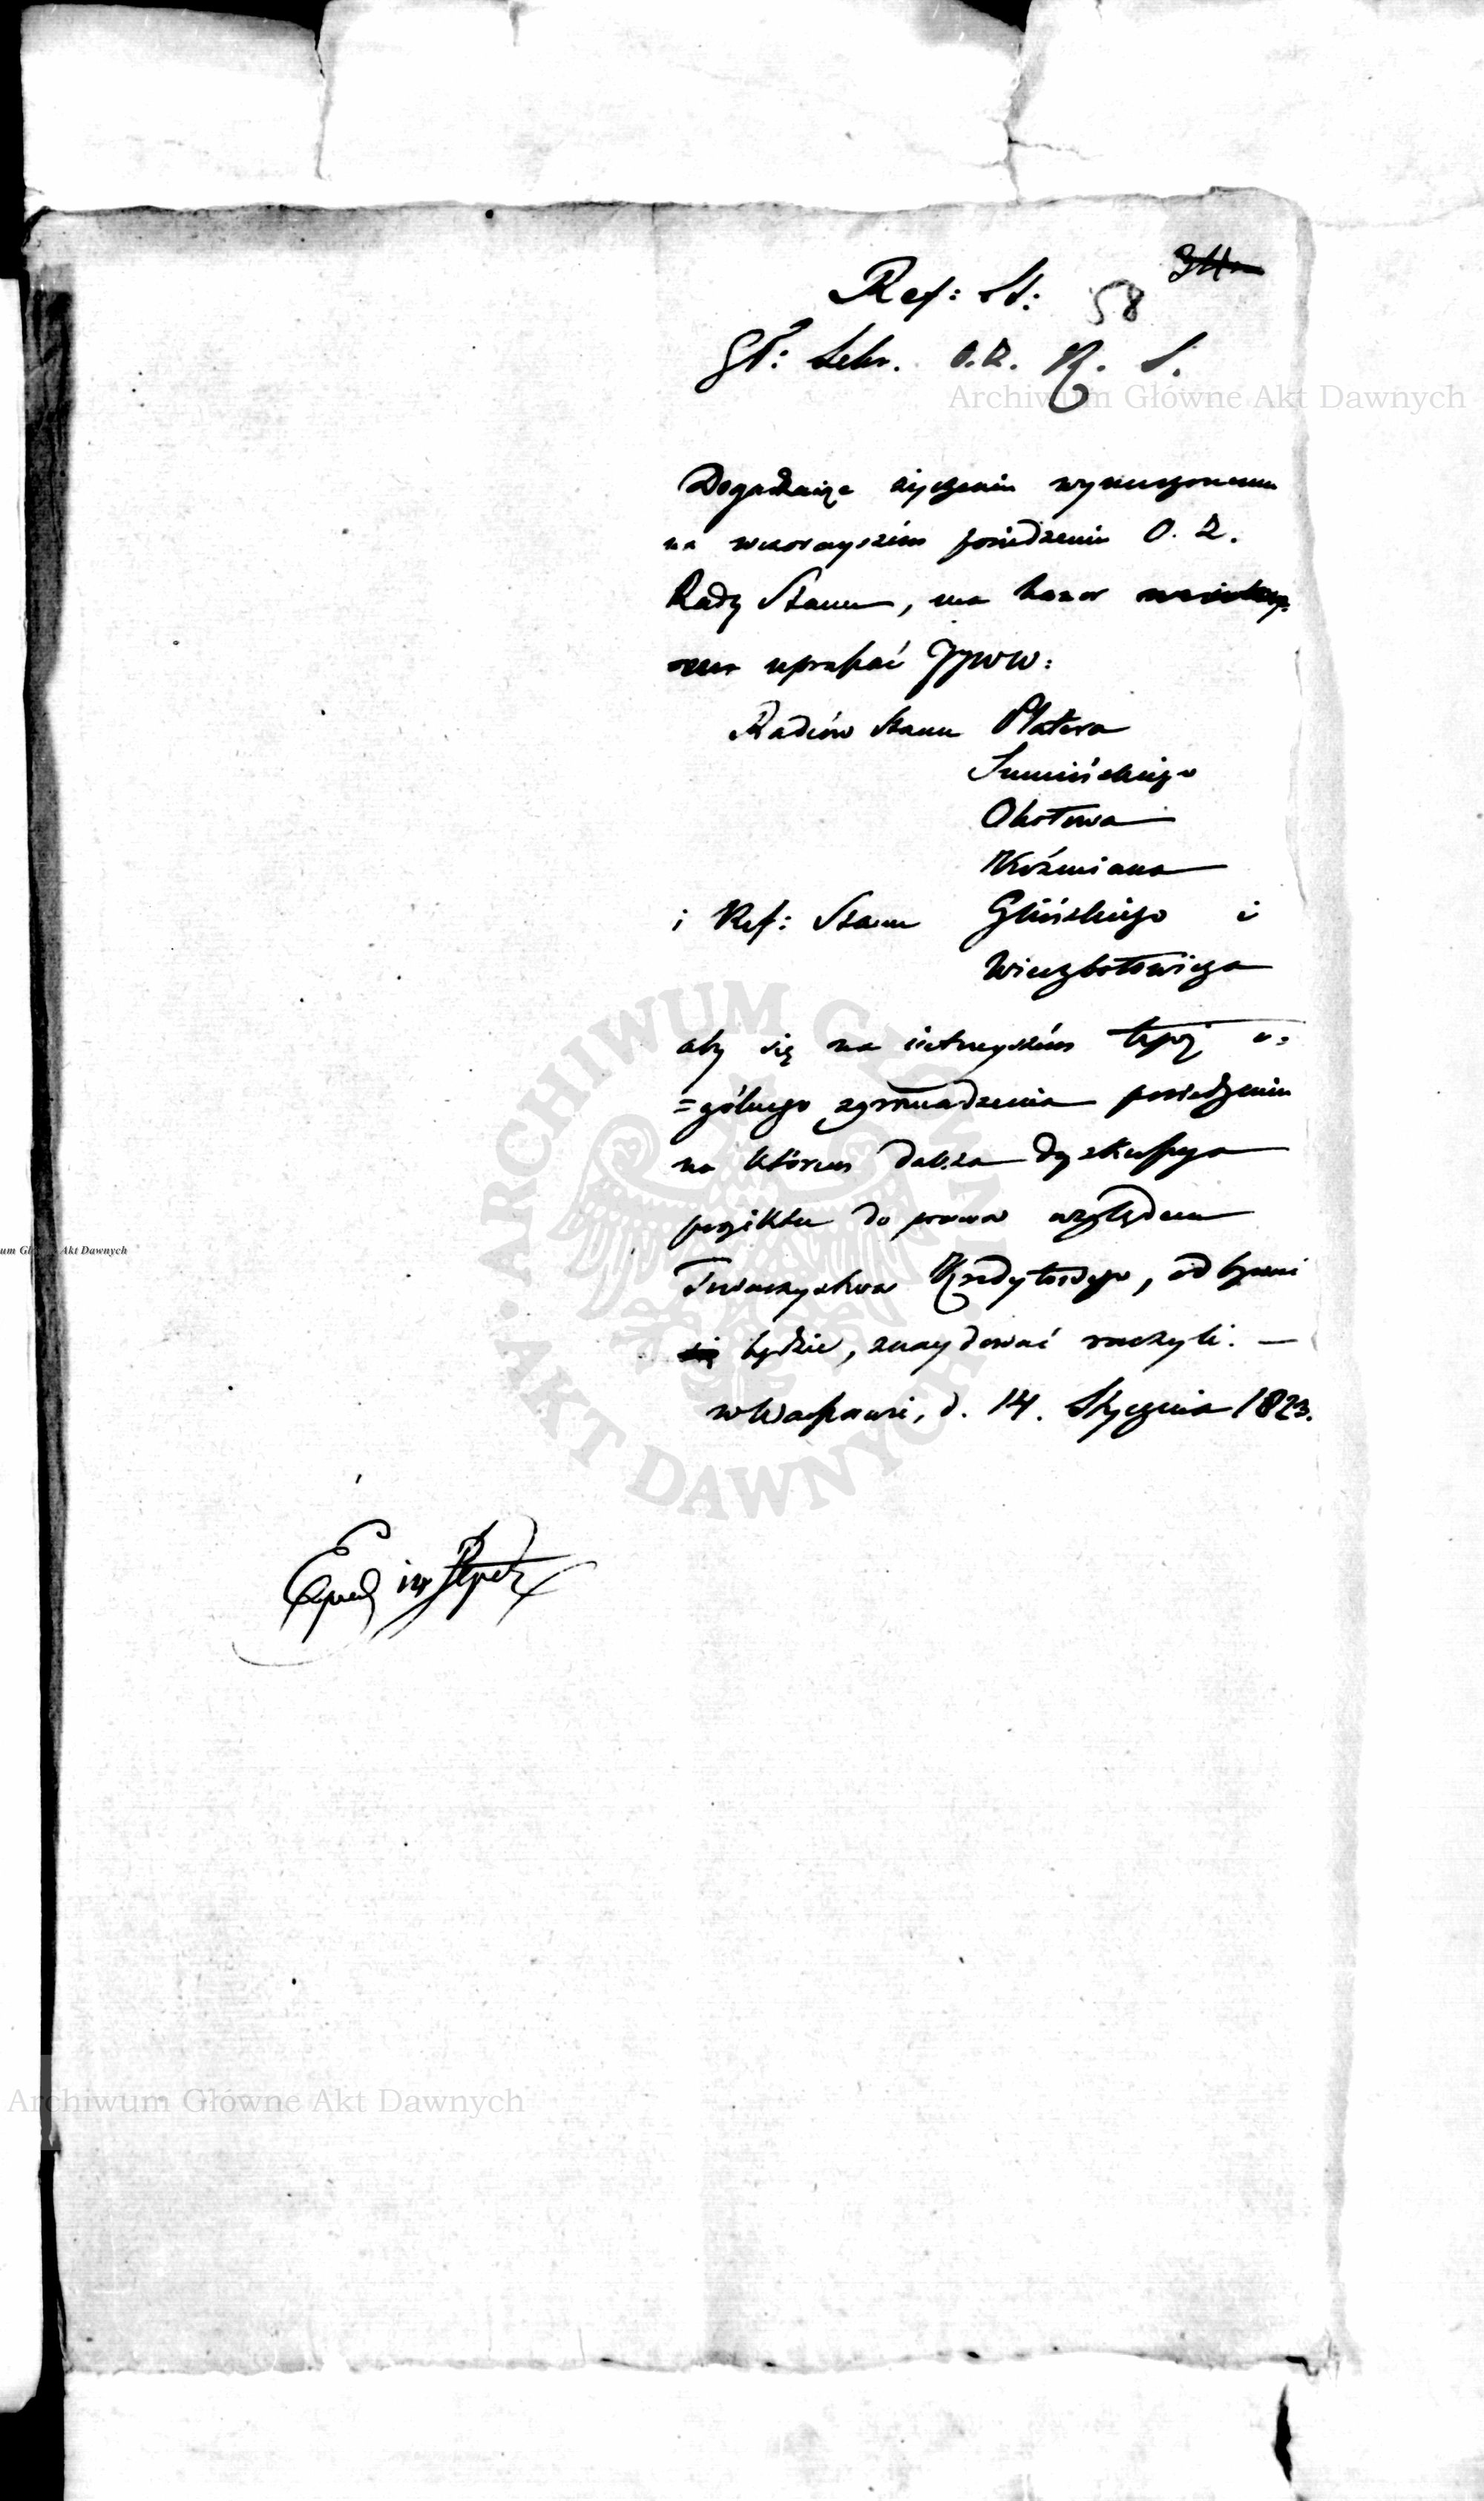 34
Ref: St: 58
Sekr. O. Z. R. S.
Dogadzaiąc życzeniu wynurzonemu
na wczorayszém posiedzeniu O. Z.
Rady Stanu, ma honor
upraszać JJWW:
Radców Stanu Platera
Sumińskiego
Okołowa
Koźmiana
i Ref: Stanu Glińskiego i
Wierzbołowicza
aby się na iutrzejszém teyże o=
=gólnego zgromadzenia posiedzeniu
na którém dalsza dyskussya
projektu do prawa względem
Towarzystwa Kredytowego, odbywać
się będzie, znaydować raczyli. —
w Warszawie, d. 14. Stycznia 1823.
Archiwum Główne Akt Dawnych
um Główne Akt Dawnych
ARCHIWUM GŁÓWNE
AKT DAWNYCH
Archiwum Główne Akt Dawnych